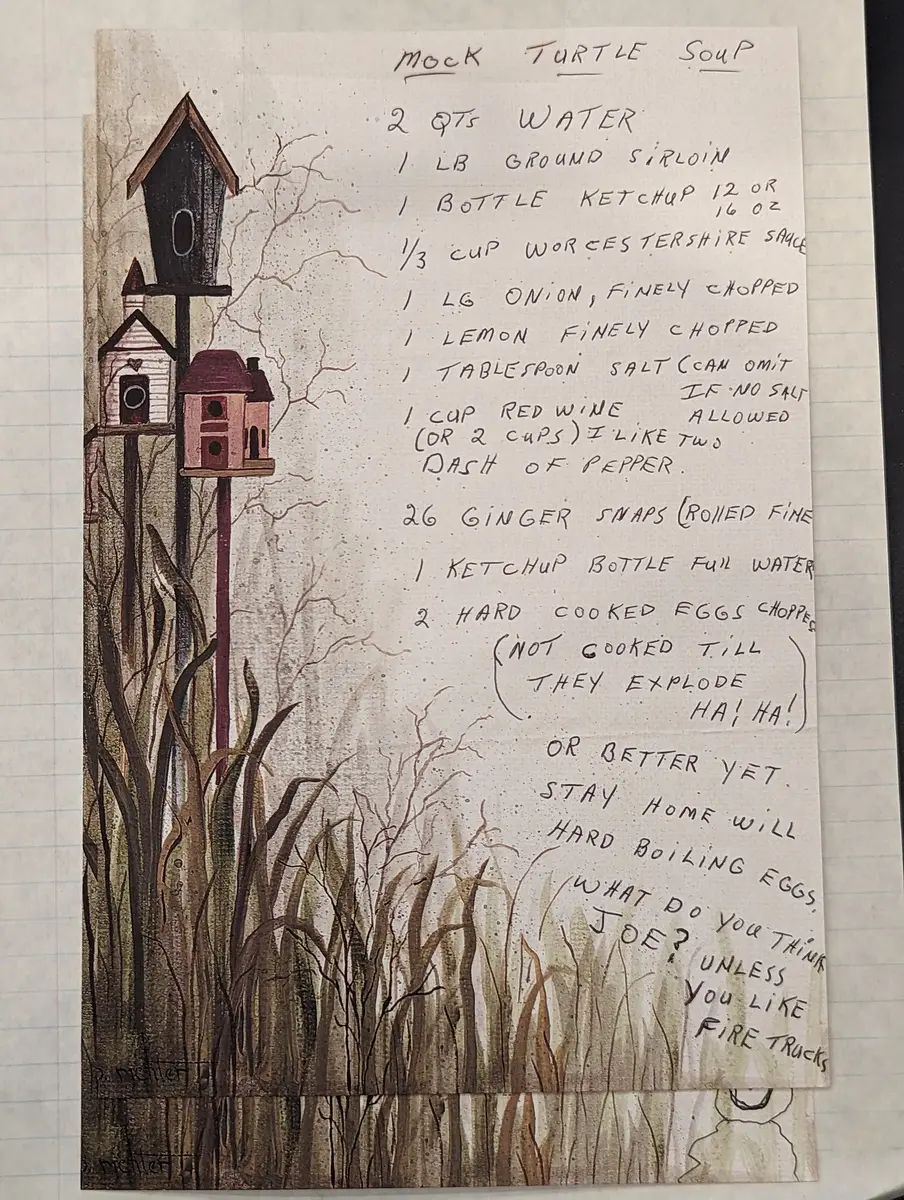 MOCK TURTLE SOUP
2 QTs WATER
1 LB GROUND SIRLOIN
1 BOTTLE KETCHUP 12 OR
16 OZ
1/3 CUP WORCESTERSHIRE SAUCE
1 LG ONION, FINELY CHOPPED
1 LEMON FINELY CHOPPED
1 TABLESPOON SALT (CAN OMIT
IF NO SALT
ALLOWED
1 CUP RED WINE
(OR 2 CUPS) I LIKE TWO
DASH OF PEPPER.
26 GINGER SNAPS (ROLLED FINE
1 KETCHUP BOTTLE FULL WATER
2 HARD COOKED EGGS CHOPPED
(NOT COOKED TILL
THEY EXPLODE
HA! HA!)
OR BETTER YET
STAY HOME WILL
HARD BOILING EGGS.
WHAT DO YOU THINK
JOE?
UNLESS
YOU LIKE
FIRE TRUCKS